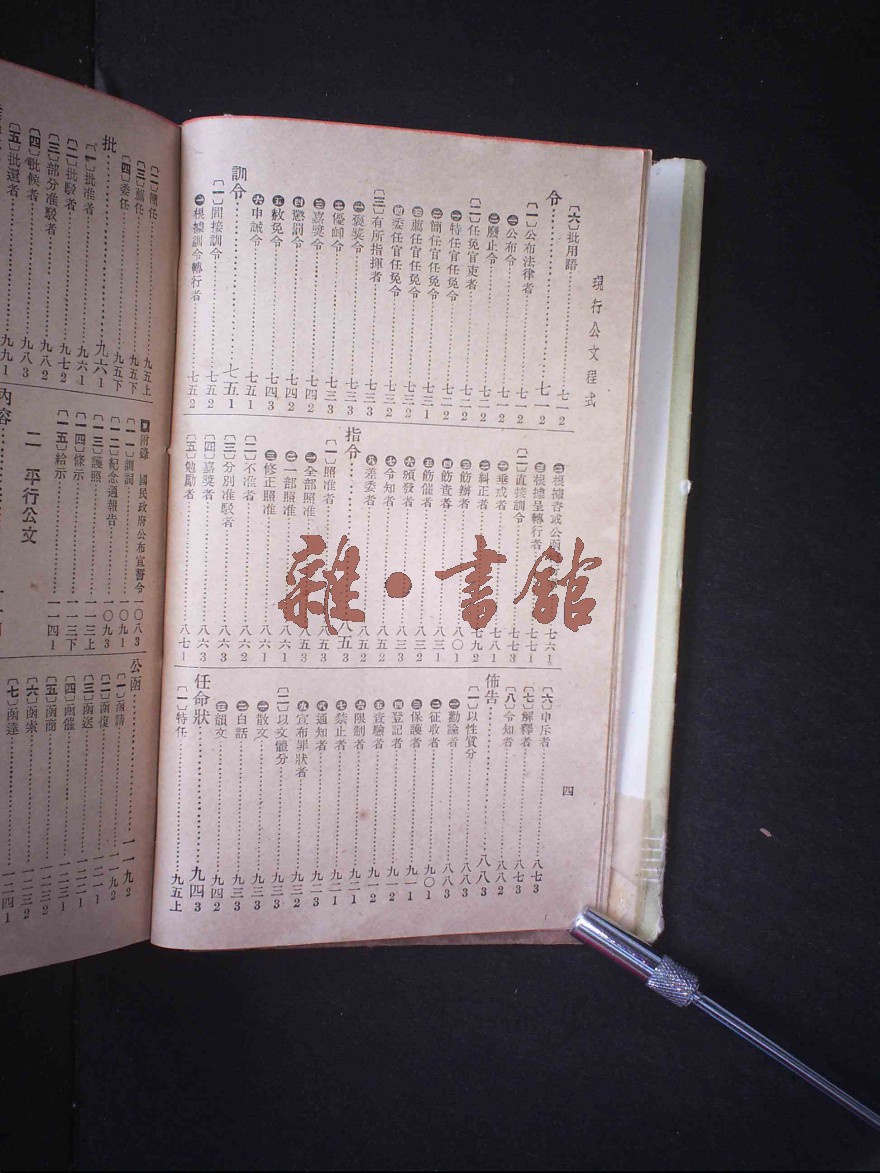 現行公文程式
四
〔六〕批用語……七一2
令……七一2
〔一〕公布法律者……七一2
㊀公布令……七一2
㊁廢止令……七二1
〔二〕任免官吏者……七二2
㊀特任官任免令……七二2
㊁簡任官任免令……七三1
㊂薦任官任免令……七三2
㊃委任官任免令……七三2
〔三〕有所指揮者……七三3
㊀褒獎令……七三3
㊁優卹令……七三3
㊂嘉獎令……七四2
㊃懲罰令……七四2
㊄赦免令……七四3
㊅申誡令……七五1
訓令……七五1
〔一〕間接訓令……七五2
㊀根據訓令轉行者……七五2
㊁根據咨或公函……七六1
㊂根據呈轉行者……七七1
〔二〕直接訓令……七七3
㊀垂戒者……七八1
㊁糾正者……七九2
㊂飭辦者……八〇1
㊃飭查者……八三1
㊄飭催者……八三1
㊅頒發者……八三2
㊆令知者……八五2
㊇差委者……八五2
指令……八五3
〔一〕照准者……八五3
㊀全部照准……八五3
㊁一部照准……八六1
㊂修正照准……八六1
〔二〕不准者……八六2
〔三〕分別准駁者……八六3
〔四〕嘉獎者……八六3
〔五〕勉勵者……八七1
〔六〕申斥者……八七3
〔七〕解釋者……八七3
〔八〕令知者……八八2
佈告……八八3
〔一〕以性質分……八八3
㊀勸諭者……八八3
㊁征收者……九〇1
㊂保護者……九一1
㊃登記者……九一2
㊄查驗者……九一2
㊅限制者……九二1
㊆禁止者……九二1
㊇通知者……九二3
㊈宣布罪狀者……九三2
〔二〕以文體分……九三3
㊀散文……九三3
㊁白話……九三3
㊂韻文……九四2
任命狀……九四3
〔一〕特任……九五上
〔二〕簡任……九五上
〔三〕薦任……九五下
〔四〕委任……九五下
批……九六1
〔一〕批准者……九六1
〔二〕批駁者……九七2
〔三〕部分准駁者……九八2
〔四〕批候者……九八3
〔五〕批還者……九九1
附錄 國民政府公布宣誓令……一〇八3
〔一一〕訓詞……一〇九1
〔一二〕紀念週報告……一〇九3
〔一三〕護照……一一三上
〔一四〕條示……一一三下
〔一五〕給示……一一四1
二 平行公文
內容
公函……一一九2
〔一〕函請……一一九2
〔二〕函復……一二一1
〔三〕函送……一二二1
〔四〕函催……一二三1
〔五〕函商……一二三2
〔六〕函索……一二三2
〔七〕函達……一二四1
雜·書舘